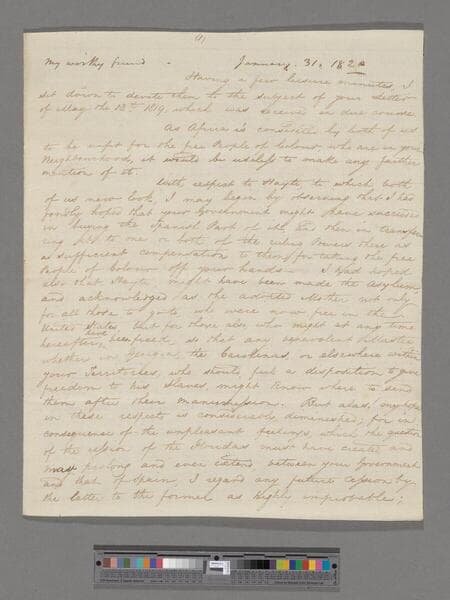 (1)
My worthy friend - January. 31. 1820
Having a few leisure minutes, I
sit down to devote them to the subject of your Letter
of May the 12th 1819, which was received in due course.
As Africa is considered by both of us
to be unfit for the free People of Colour who are in your
Neighbourhood, it would be useless to make any farther
mention of it.
With respect to Hayti, to which both
of us now look, I may begin by observing that I had
fondly hoped that your Government might have succeeded
in buying the Spanish Part of it and then in transfer
ring it to one or both of the ruling Powers there as
a sufficient compensation to them for taking the free
People of Colour off your hands — I had hoped
also that Hayti might have been made the Asylum
and acknowledged as the adopted Mother not only
for all those to go to, who were now free in the
United States, but for those also who might at any time
hereafter be free, so that any benevolent Planter
whether in Georgia, the Carolinas, or elsewhere within
your Territories, who should feel a disposition to give
freedom to his Slaves, might know where to send
them after their manumission. But alas, my hope
in these respects is considerably diminished; for in
consequence of the unpleasant feelings, which the question
of the cession of the Floridas must have created and
may prolong and even extend between your Government
and that of Spain, I regard any future cession by
the latter to the former as highly improbable;